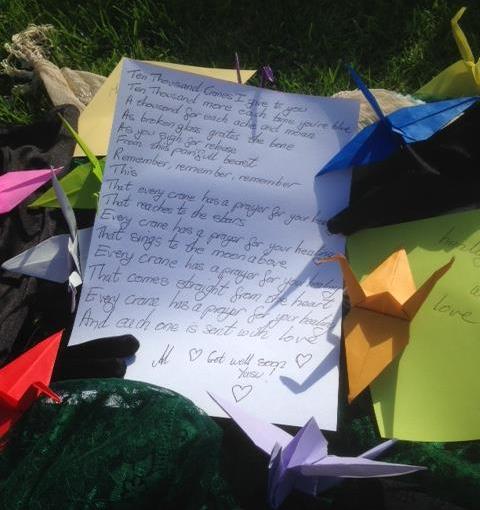 Ten Thousand Cranes I give to you
Ten Thousand more each time you're blue
A thousand for each ache and moan
As broken glass grates the bone
As you sigh for release
From this painfull beast
Remember, remember, remember
This
That every crane has a prayer for your hea
That reaches to the stars
Every crane has a prayer for your healing
That sings to the moon above
Every Crane has a prayer for your healing
That comes straight from the heart
Every crane has a prayer for your healing
And each one is sent with love
♡ Get well soon ♡
Yasu!
♡
love